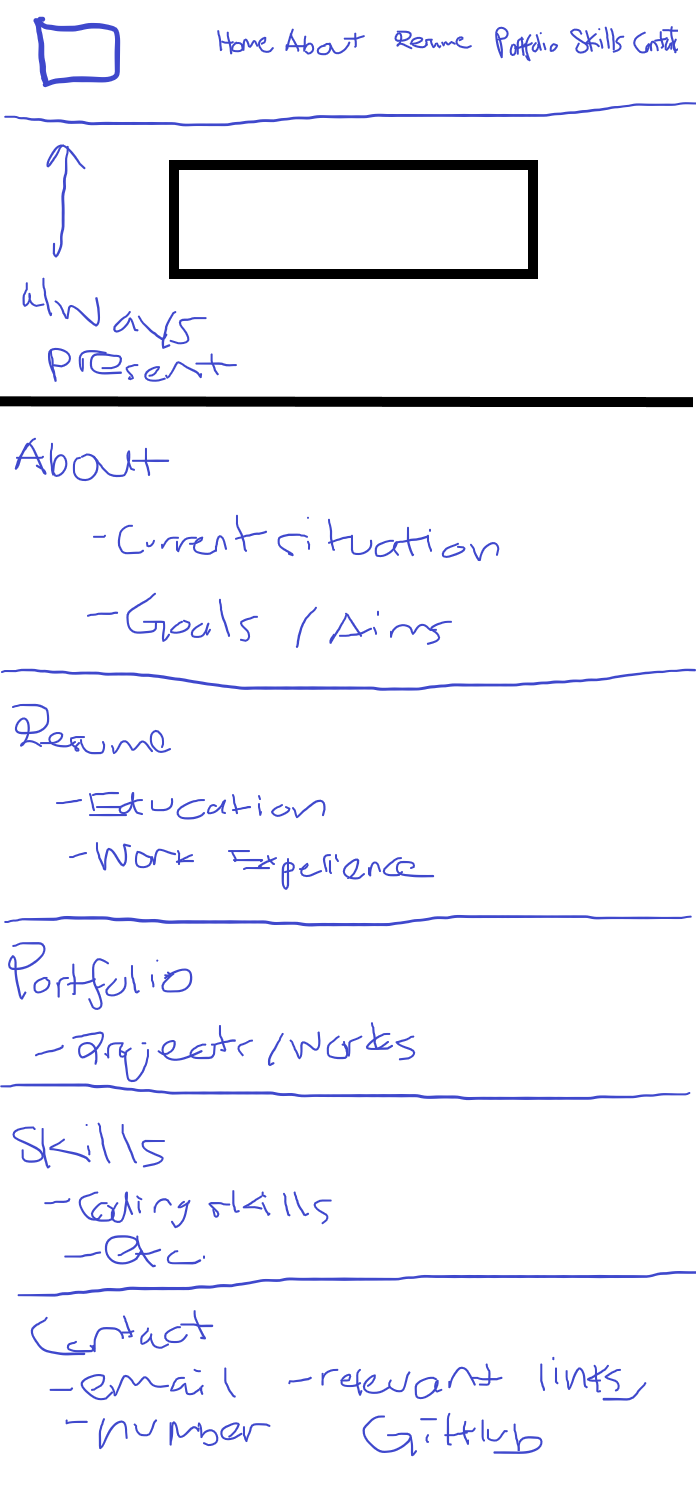 Home About Resume Portfolio Skills Contact
always
present
About
- Current situation
- Goals / Aims
Resume
- Education
- Work Experience
Portfolio
- Projects / Works
Skills
- Coding skills
- Etc.
Contact
- email - relevant links,
- number GitHub